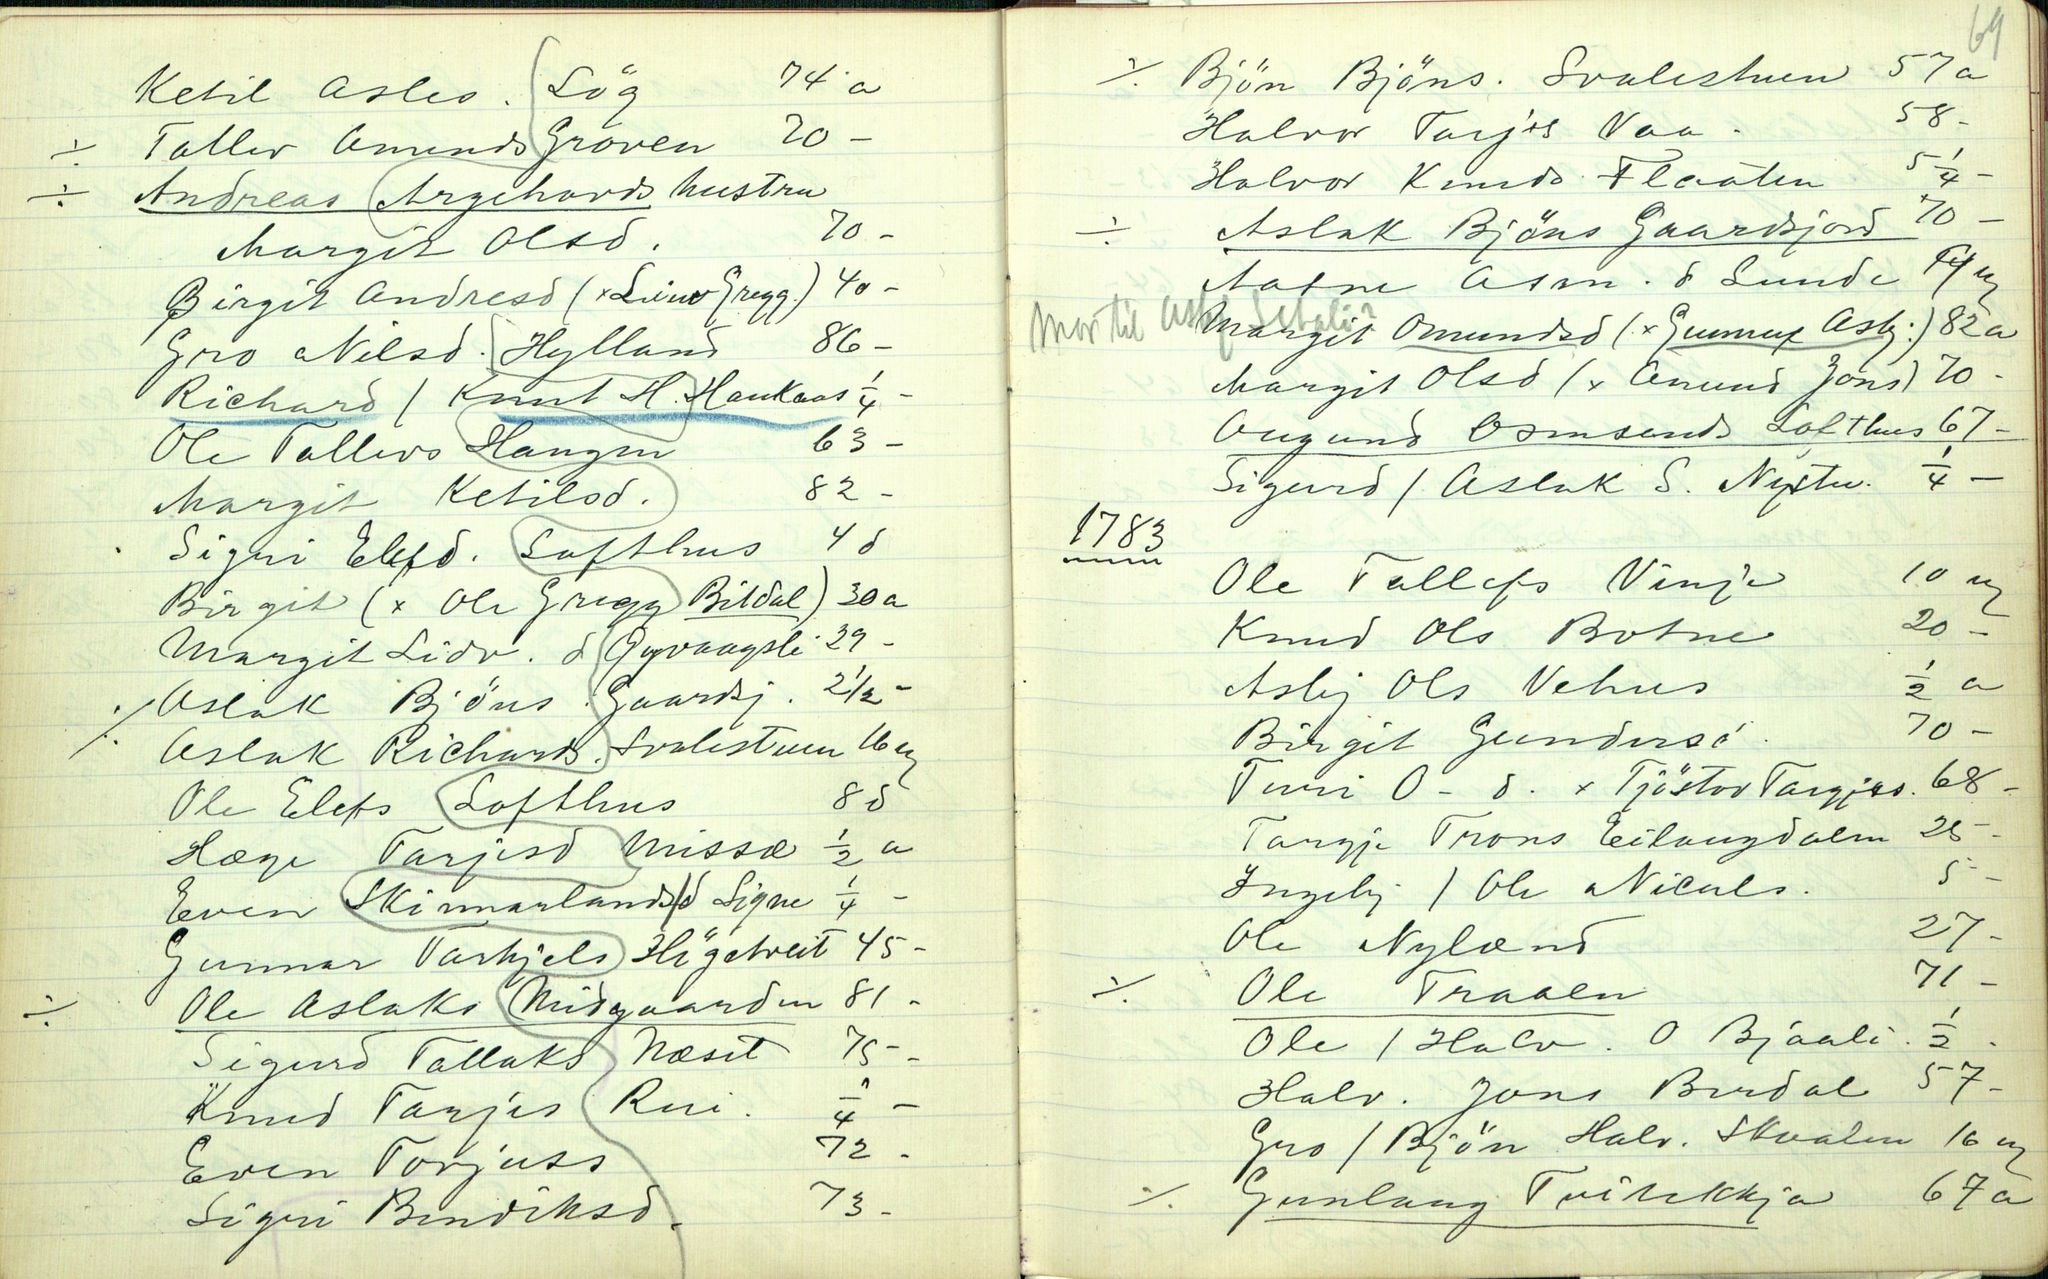 Ketil Asles. Lög 74 a
÷ Tallev Amunds Groven 70 -
÷ Andreas Argehards hustru
Margit Olsd. 70 -
Birgit Andresd (x Gregg.) 40 -
Gro Nilsd. Hylland 86 -
Richard / Knut H. Haukaas 1/4 -
Ole Tallevs Haugen 63 -
Margit Ketilsd. 82 -
Sigri Elefd. Lofthus 4 d
Birgit (x Ole Gregg Bitdal) 30 a
Margit Lidv. d Gyvaagsli 29 -
Aslak Bjöns Gaardsj. 2 1/2 -
÷ Aslak Richards. Svalestuen 16 u
Ole Elefs Lofthus 8 d
Hæge Tarjesd Missæ 1/2 a
Even Skinnarlands/d Signe 1/4 -
Gunnar Tarkjels Högetveit 45 -
÷ Ole Aslaks Midgaarden 81 -
Sigurd Tallaks Næset 75 -
Knud Tarjes Rui. 1/4 -
Even Torjuss 72 -
Sigri Bendiksd. 73 -
69
÷ Bjön Bjöns. Svalestuen 57 a
Halvor Tarjes Vaa. 58 -
Halvor Knuds Flaaten 5 1/4 -
÷ Aslak Bjöns Gaardsjord 70 -
Aatne Asm. d Lunde 14 u
Mor til
Margit Omundsd (x Gunnuf Asbj.) 82 a
Margit Olsd (x Amund Jons) 70 -
Augund Osmunds Lofthus 67 -
Sigurd / Aslak S. Nystu. 1/4 -
1783
Ole Tallefs Vinje 10 u
Knud Ols Botne 20 -
Asbj Ols Vehus 1/2 a
Birgit Gundersd. 70 -
Turi O - d. x Tjöstov Targjes. 68 -
Targje Trons Eilaugdalen 25 -
Ingebj / Ole Niculs. 5 -
Ole Nylænd 27 -
÷ Ole Traaen 71 -
Ole / Halv. O Bjaali. 1/2 -
Halv. Jons Burdal 57 -
Gro / Bjön Halv. Skvalen 16 u
÷ Gunlaug Tveitekkja 67 a